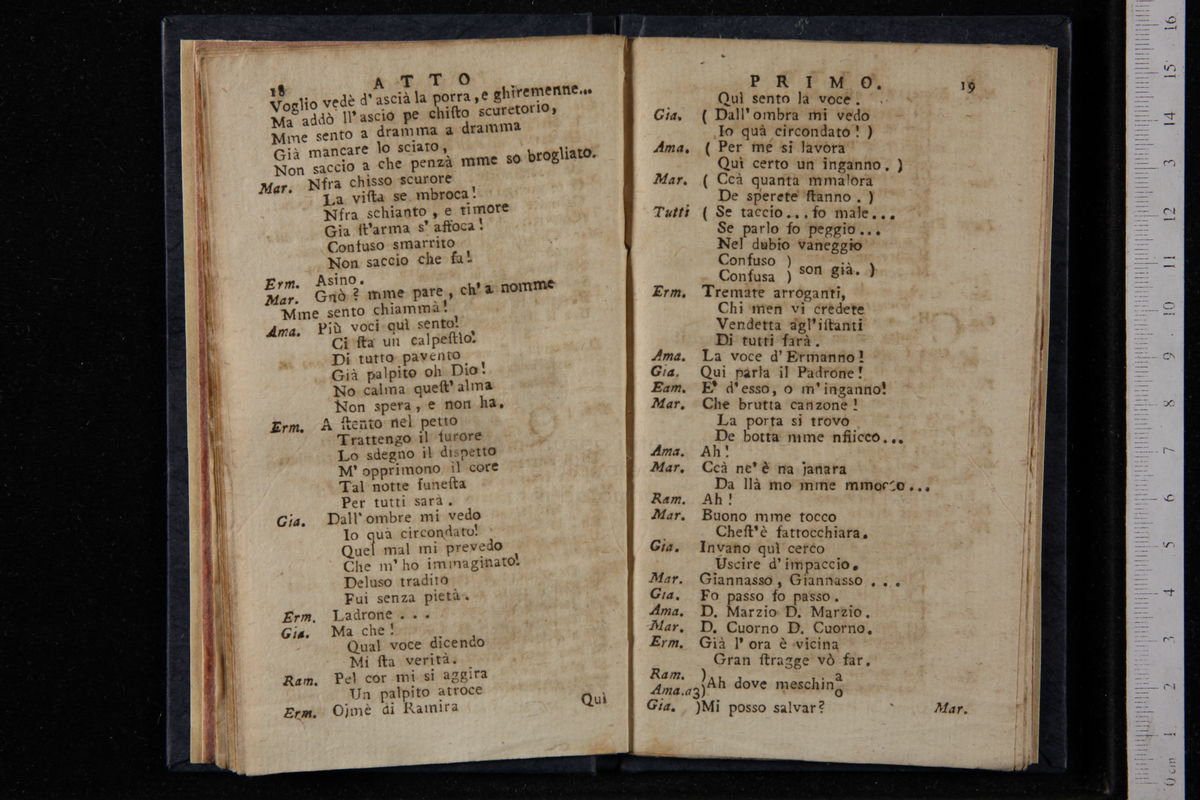 18 ATTO
Voglio vedè d'ascià la porra, e ghiremenne...
Ma addò ll'ascio pe chiſto scuretorio,
Mme sento a dramma a dramma
Già mancare lo sciato,
Non saccio a che penzà mme so brogliato.
Mar. Nfra chisso scurore
La viſta se mbroca!
Nfra schianto, e timore
Gia ſt'arma s'affoca!
Confuso smarrito
Non saccio che fa!
Erm. Asino.
Mar. Gnò? mme pare, ch'a nomme
Mme sento chiammà!
Ama. Più voci quì sento!
Ci ſta un calpeſtio!
Di tutto pavento
Già palpito oh Dio!
No calma queſt'alma
Non spera, e non ha.
Erm. A ſtento nel petto
Trattengo il furore
Lo sdegno il dispetto
M'opprimono il core
Tal notte funeſta
Per tutti sarà.
Gia. Dall'ombre mi vedo
Io quà circondato!
Quel mal mi prevedo
Che m'ho immaginato!
Deluso tradito
Fui senza pietà.
Erm. Ladrone...
Gia. Ma che!
Qual voce dicendo
Mi ſta verità.
Ram. Pel cor mi si aggira
Un palpito atroce
Erm. Ojmè di Ramira
Quì
PRIMO. 19
Quì sento la voce.
Gia. ( Dall'ombra mi vedo
Io quà circondato! )
Ama. ( Per me si lavora
Quì certo un inganno. )
Mar. ( Ccà quanta mmalora
De sperete ſtanno. )
Tutti ( Se taccio... fo male...
Se parlo fo peggio...
Nel dubio vaneggio
Confuso )
Confusa ) son già. )
Erm. Tremate arroganti,
Chi men vi credete
Vendetta agl'iſtanti
Di tutti farà.
Ama. La voce d'Ermanno!
Gia. Qui parla il Padrone!
Eam. E' d'esso, o m'inganno!
Mar. Che brutta canzone!
La porta si trovo
De botta mme nfiicco...
Ama. Ah!
Mar. Ccà ne'è na janara
Da llà mo mme mmocco...
Ram. Ah!
Mar. Buono mme tocco
Cheſt'è fattocchiara.
Gia. Invano quì cerco
Uscire d'impaccio.
Mar. Giannasso, Giannasso...
Gia. Fo passo fo passo.
Ama. D. Marzio D. Marzio.
Mar. D. Cuorno D. Cuorno.
Erm. Già l'ora è vicina
Gran ſtragge vò far.
Ram. )
Ama.a3)Ah dove meschin a o
Gia. )Mi posso salvar?
Mar.